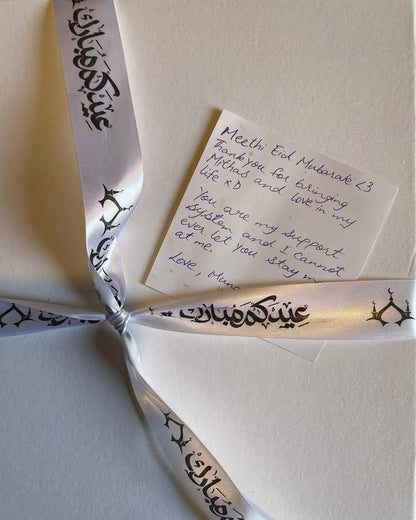 عيدكم مبارك
Meethi Eid Mubarak <3
Thank you for bringing
Mithas and love in my
life xD
You are my support
system and I cannot
ever let you stay m
at me
Love, Muna
عيدكم مبارك
عيدكم مبارك